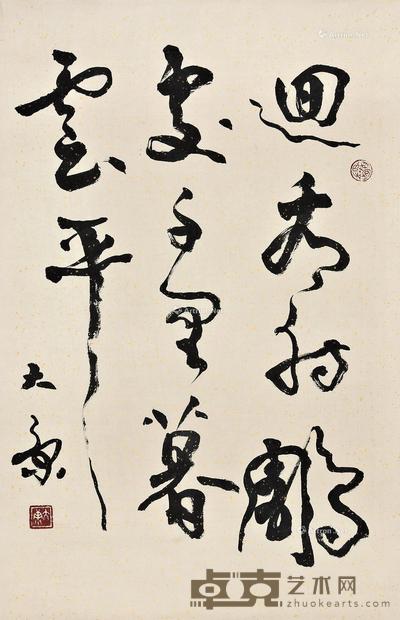 迴看射鵰
處千里暮
雲平
大康
卓克艺术网
zhuokearts.com